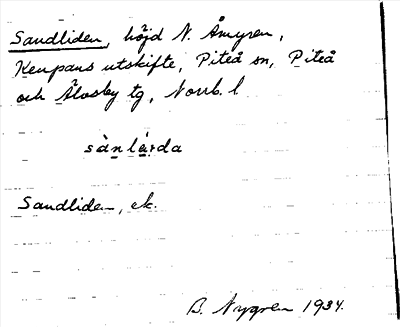 Sandliden, höjd N. Åmyren,
Kenpans utskifte, Piteå sn, Piteå
och Älvsby tg, Norrb. l
sànlárda
Sandliden, ek.
B. Nygren 1934.